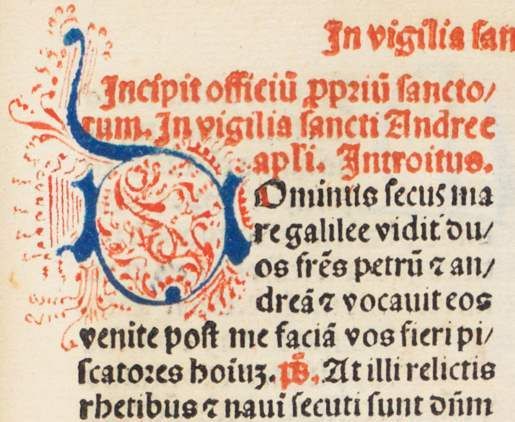 In vigilia san
Incipit officiū ꝓpriū sancto/
rum. In vigilia sancti Andree
apli. Introitus.
DOminus secus ma
re galilee vidit du/
os frēs petrū ⁊ an/
dreā ⁊ vocavit eos
venite post me faciā vos fieri pi/
scatores hoiuꝫ. p̄s. At illi relictis
rhetibus ⁊ navi secuti sunt dn̄m